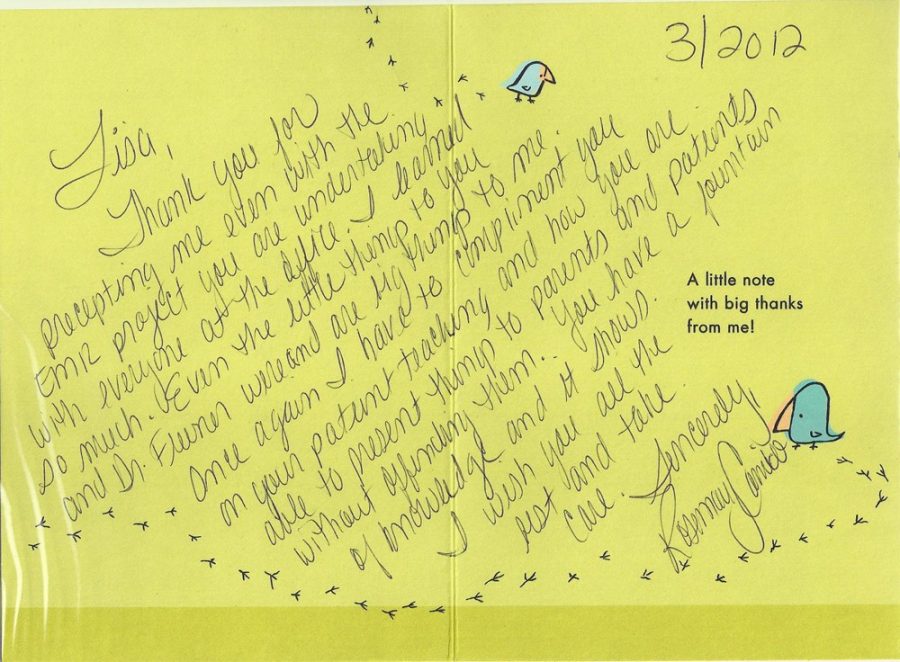 3/2012
Lisa,
Thank you for
precepting me even with the
EMR project you are undertaking
with everyone at the office. I learned
so much. Even the little things to you
and Dr. were and are big things to me.
Once again I have to compliment you
on your patient teaching and how you are
able to present things to parents and patients
without offending them. You have a fountain
of knowledge and it shows.
I wish you all the
best and take
care. Sincerely,
Rosemary
A little note
with big thanks
from me!